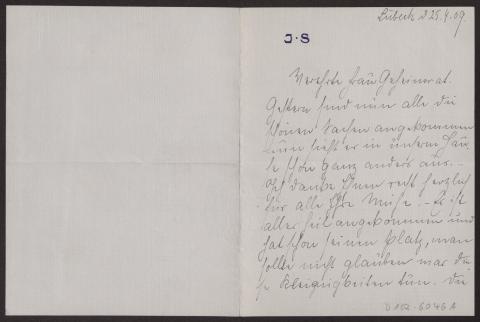 Lübeck d 25.4.09.
J·S
Verehrte Frau Geheimrat.
Gestern sind nun alle die
schönen Sachen angekommen
nun sieht es in unserm Häus
le schon ganz anders aus. –
Ich danke Ihnen recht herzlich
für alle Ihre Mühe. – Es ist
alles heil angekommen und
hat schon seinen Platz, man
sollte nicht glauben was die
se Kleinigkeiten tun. Die
D 102-6046 A